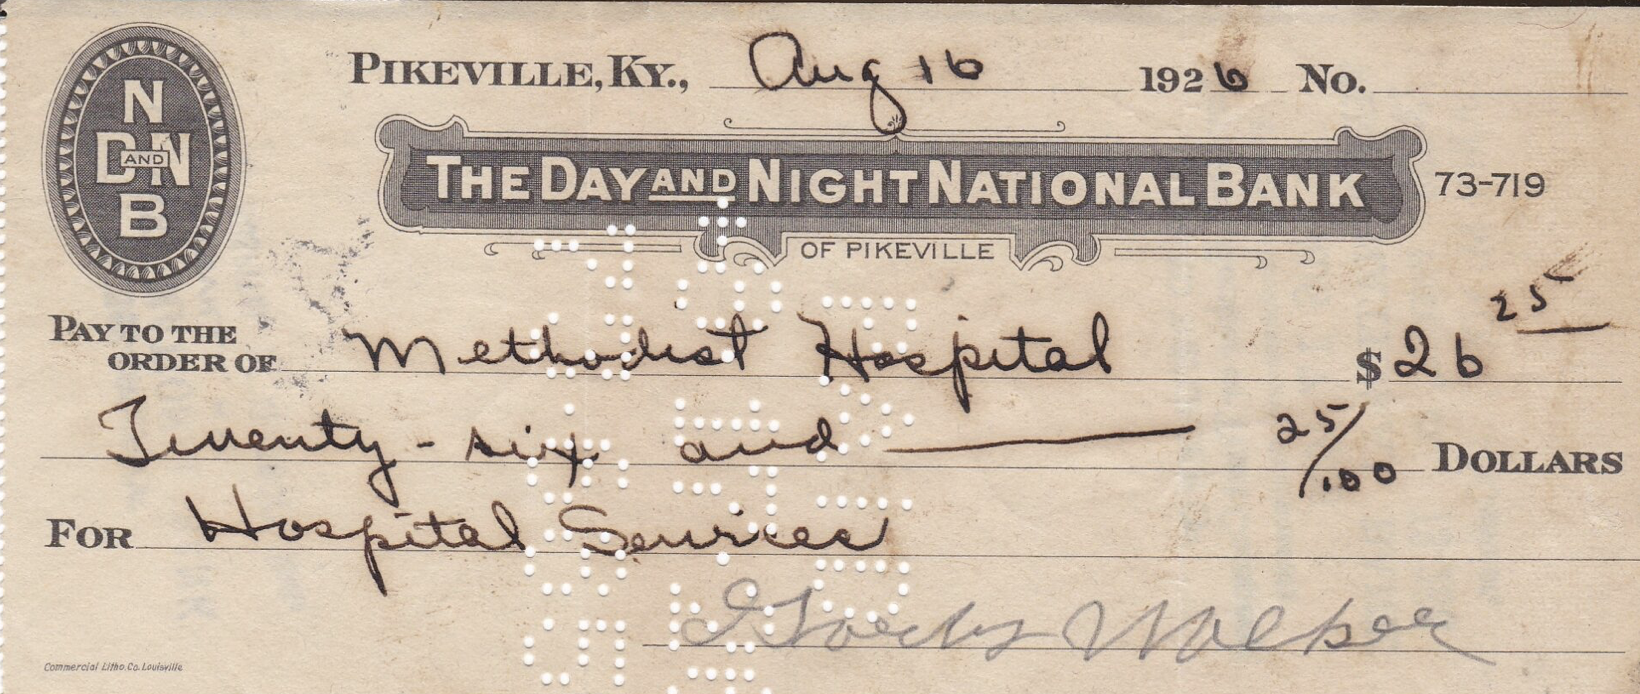 N
D AND N
B
PIKEVILLE, KY., Aug 16 1926 No.
THE DAY AND NIGHT NATIONAL BANK 73-719
OF PIKEVILLE
PAY TO THE
ORDER OF Methodist Hospital $26 25
Twenty-six and 25/100 DOLLARS
FOR Hospital Services
Walker
Commercial Litho. Co. Louisville